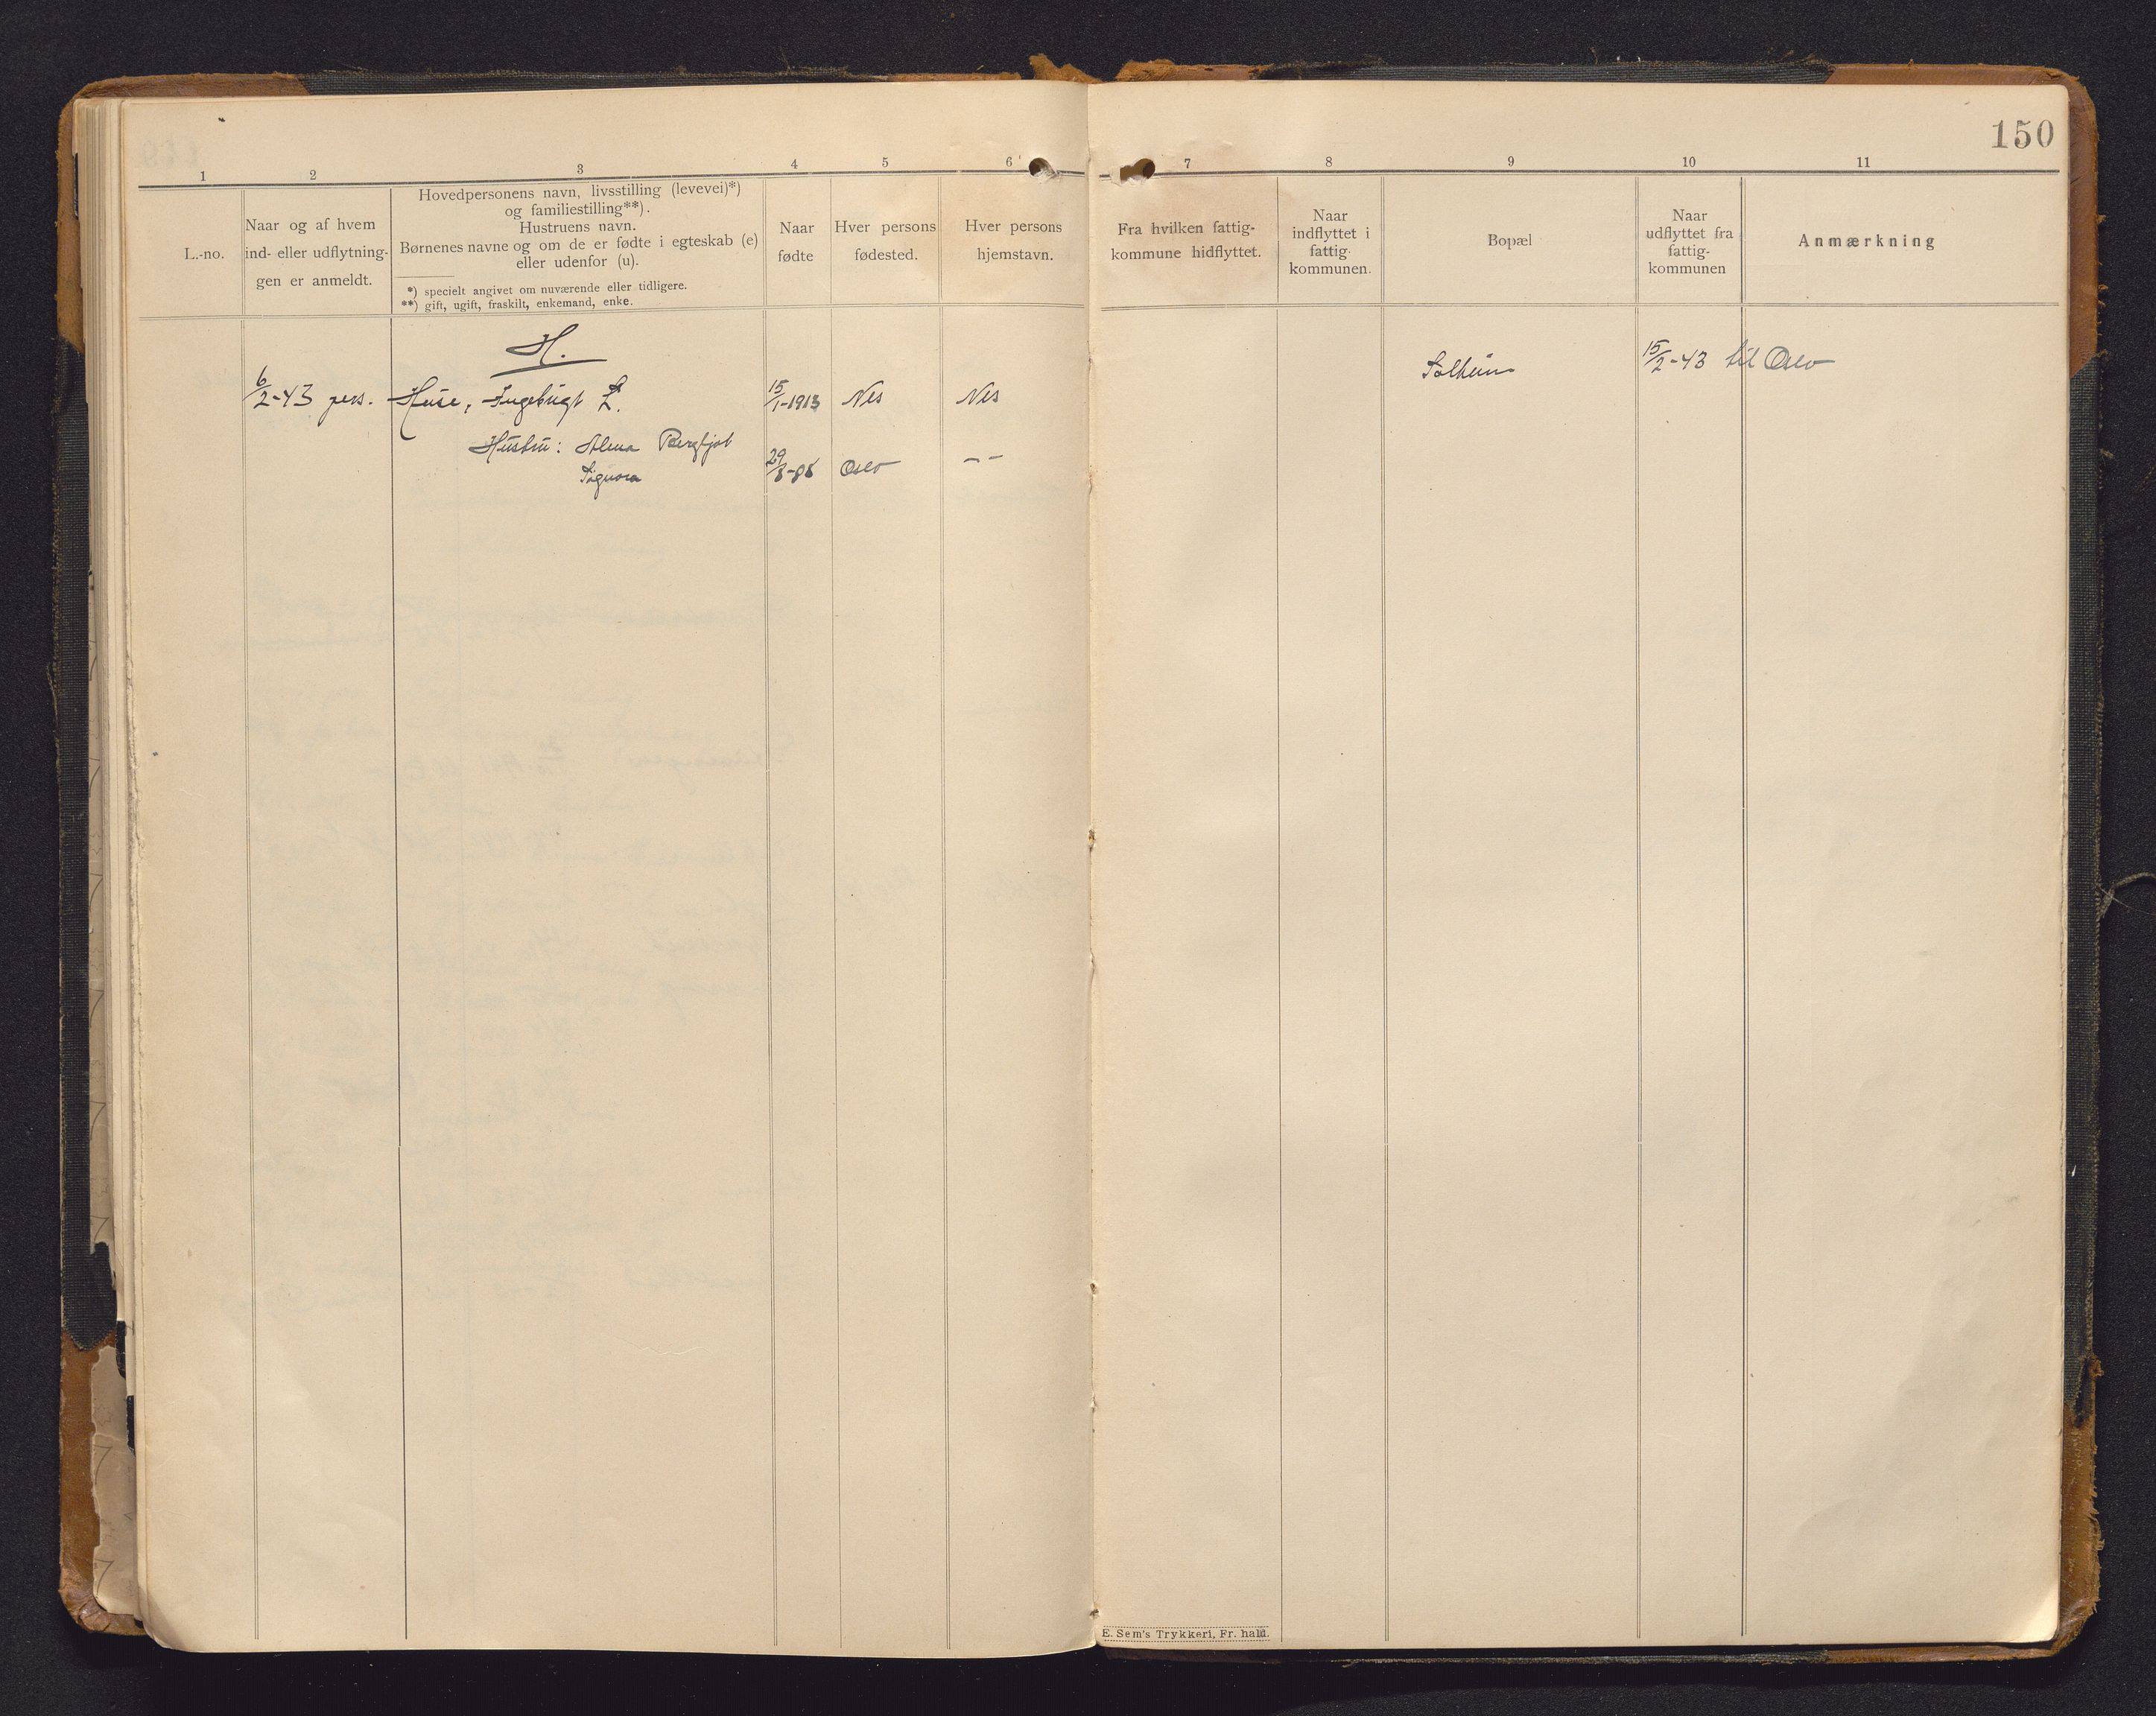 150
1 2 3 4 5 6 7 8 9 10 11
L.-no.
Naar og af hvem
ind- eller udflytning-
gen er anmeldt.
Hovedpersonens navn, livsstilling (levevei)*)
og familiestilling**).
Hustruens navn.
Børnenes navne og om de er fødte i egteskab (e)
eller udenfor (u).
*) specielt angivet om nuværende eller tidligere.
**) gift, ugift, fraskilt, enkemand, enke.
Naar
fødte
Hver persons
fødested.
Hver persons
hjemstavn.
Fra hvilken fattig-
kommune hidflyttet.
Naar
indflyttet i
fattig-
kommunen.
Bopæl
Naar
udflyttet fra
fattig-
kommunen
Anmærkning
H.
6/2-43 pers. Huse, Ingebrigt L. 15/1-1913 Nes Nes Solheim 15/2-43 til Oslo
Hustru: Alma Bergljot
Signora 29/8- Oslo - -
E. Sem's Trykkeri, Fr.hald.